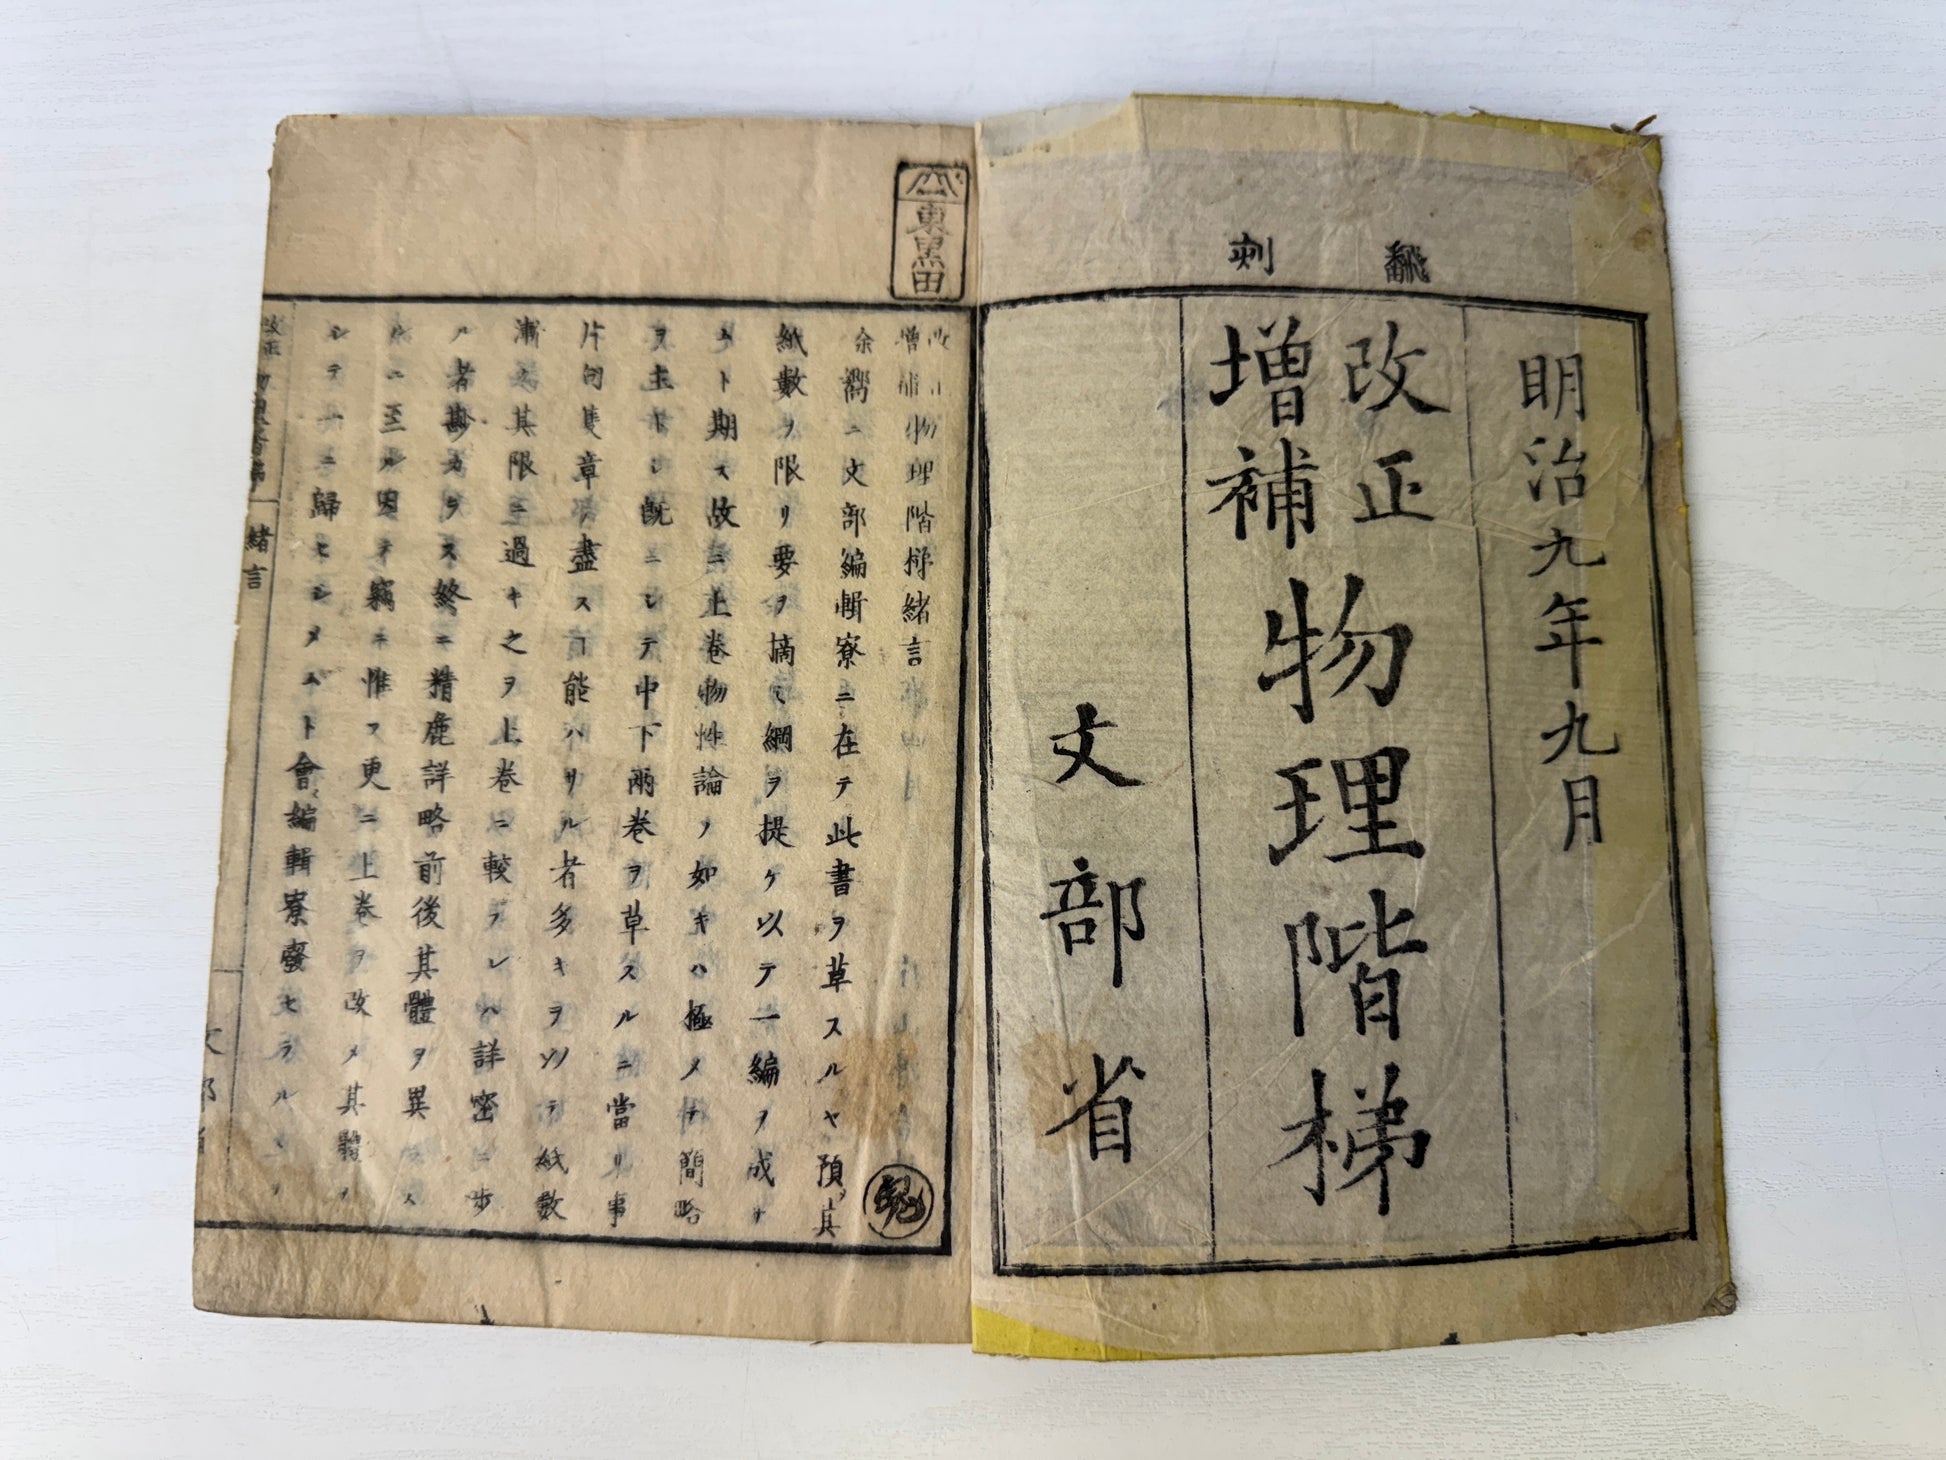 翻刻
明治九年九月
改正
増補
物理階梯
文部省
東黒田
改正
増補物理階梯緒言
余嚮ニ文部編輯寮ニ在テ此書ヲ草スルヤ預メ其
紙數ヲ限リ要ヲ摘ミ綱ヲ提ケ以テ一編ヲ成サ
ント期ス故ニ上卷物性論ノ如キハ極メテ簡略
ヲ主トシ既ニシテ中下兩卷ヲ草スルニ當リ事
片句隻章ノ盡スコ能ハサル者多キヲ以テ紙數
漸ク其限ニ過キ之ヲ上卷ニ較フレハ詳密ニ歩
ル者尠カラス終ニ精麁詳略前後其體ヲ異ニス
ルニ至ル因テ竊ニ惟フ更ニ上卷ヲ改メ其體ヲ
シテ一ニ歸セシメント會編輯寮廢セラル
改正
物理階梯
緒言
文部省